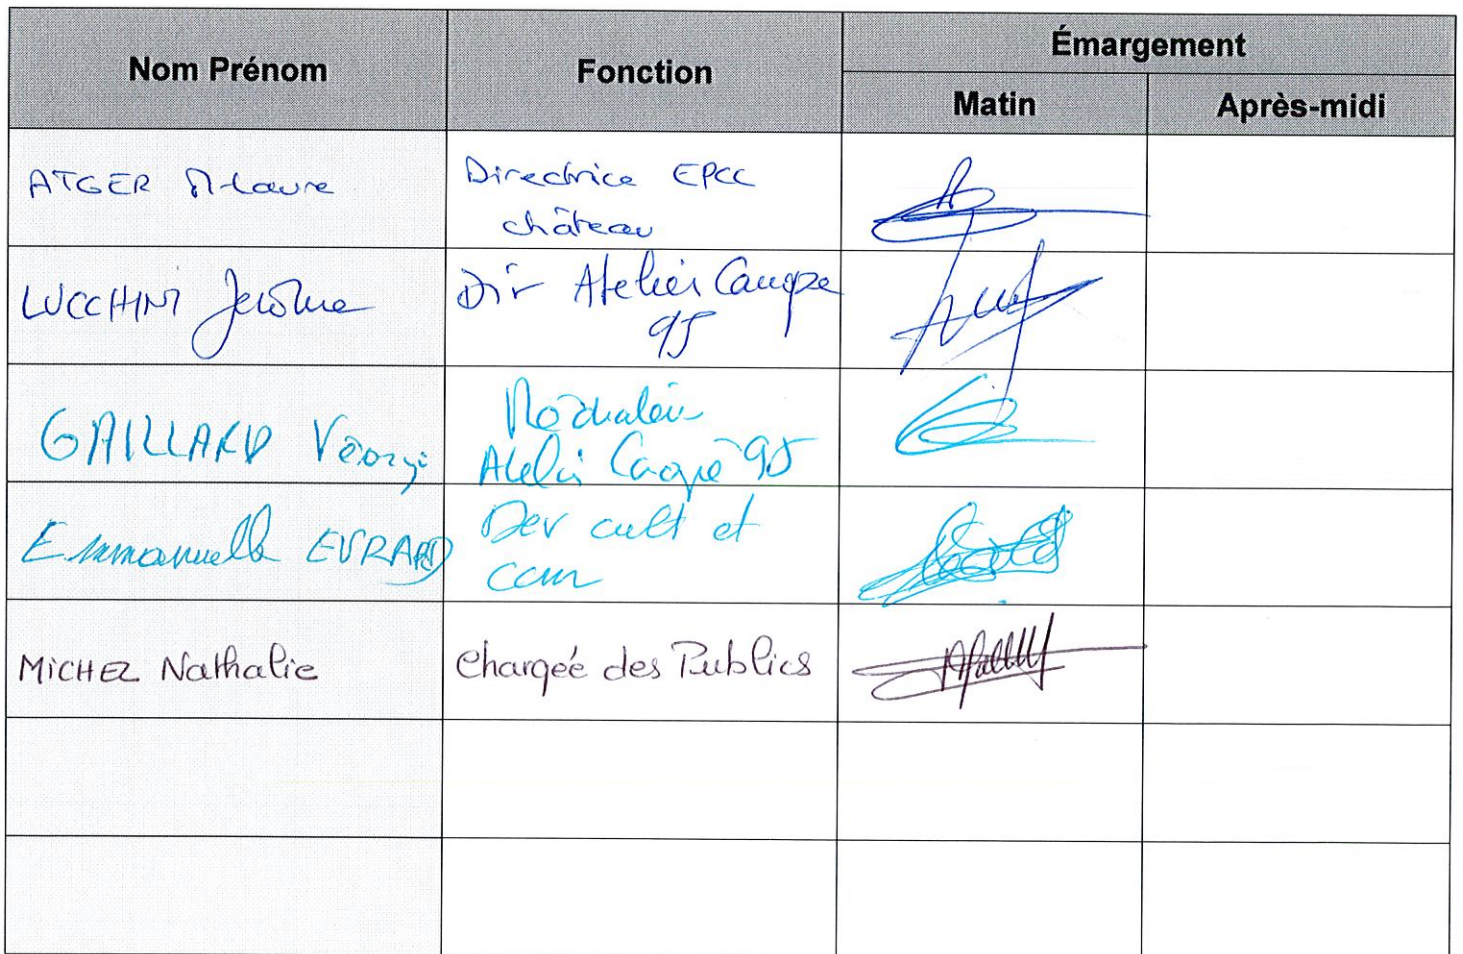 Nom Prénom Fonction Émargement
Matin Après-midi
ATGER M-Laure Directrice EPCC
château
LUCCHINI Jérôme Dir Atelier
95
GAILLARD
Atelier 95
Emmanuelle EVRARD Dev cult et
com
MICHEL Nathalie Chargée des Publics